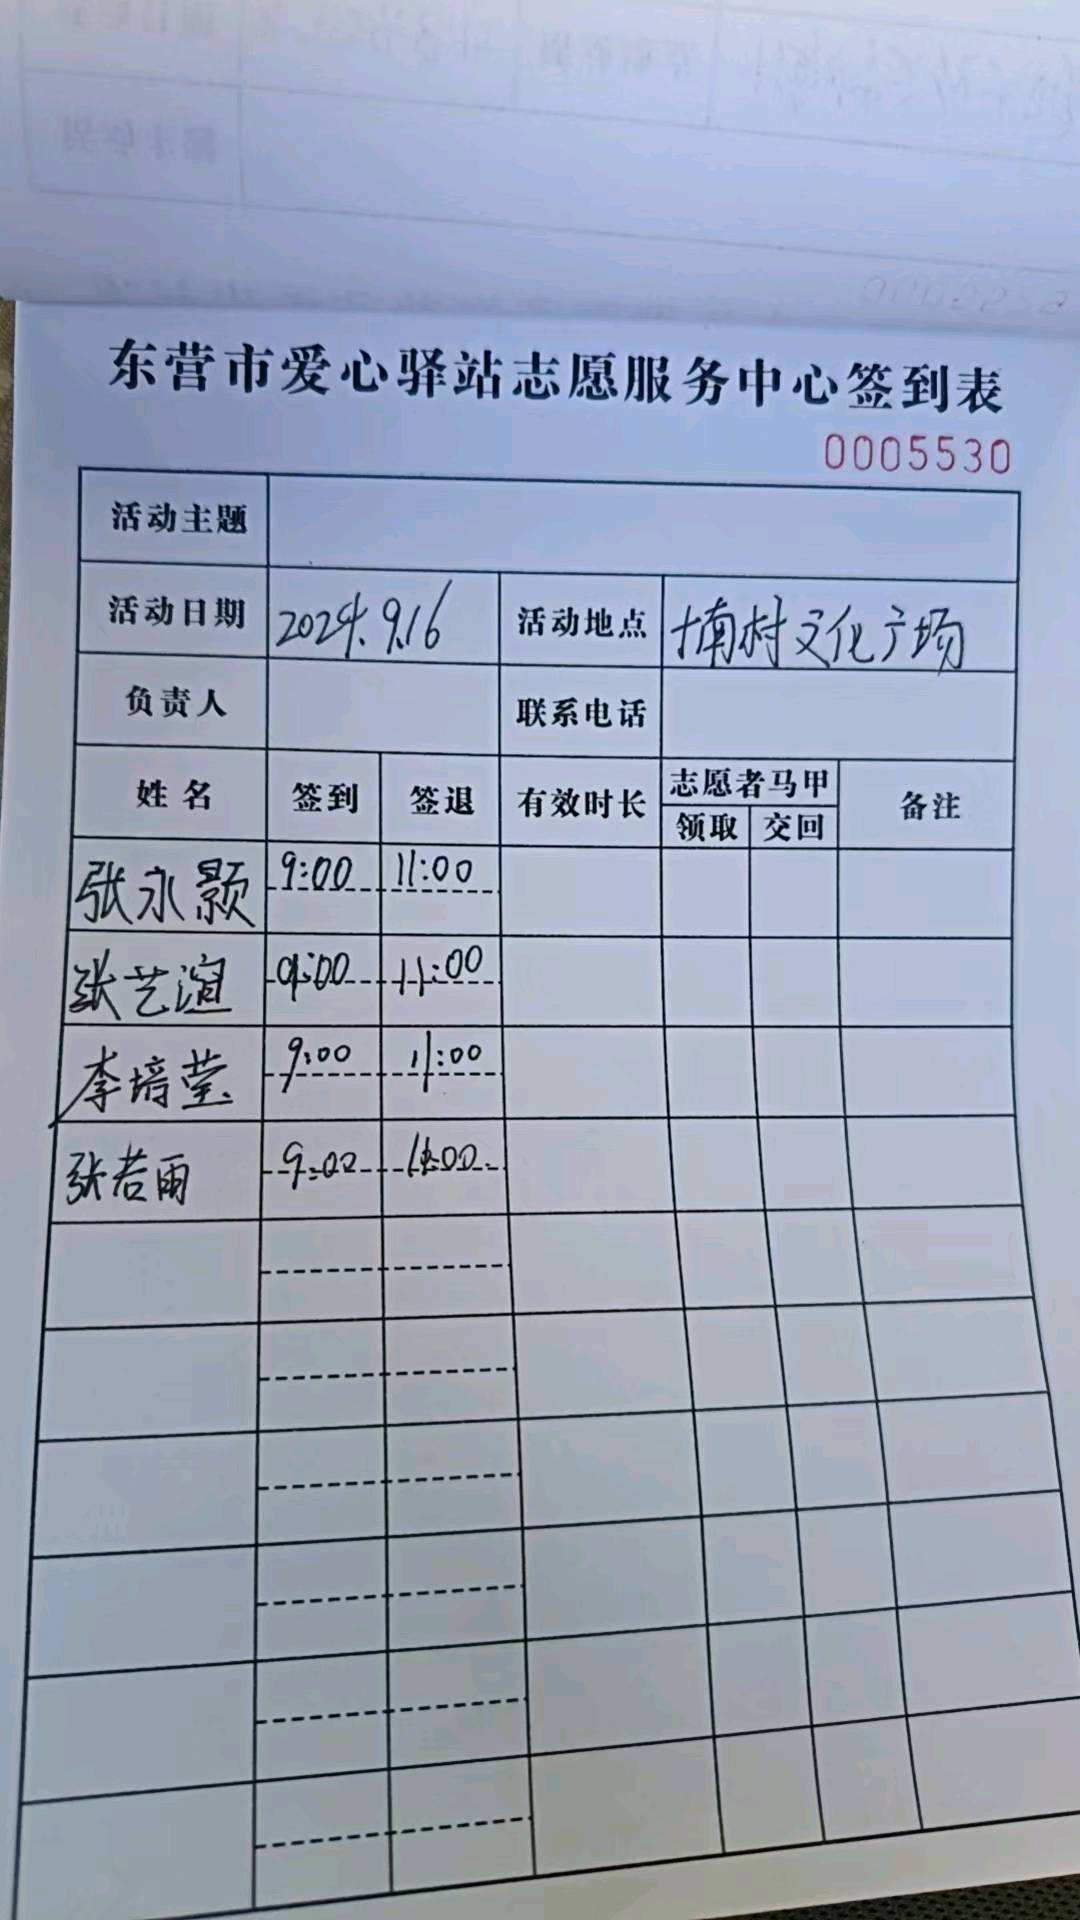 东营市爱心驿站志愿服务中心签到表
0005530
活动主题
活动日期 2024.9.16 活动地点 南村文化广场
负责人 联系电话
姓名 签到 签退 有效时长 志愿者马甲 备注
领取 交回
张永颢 9:00 11:00
张艺渲 9:00 11:00
李培莹 9:00 11:00
张若雨 9:00 11:00